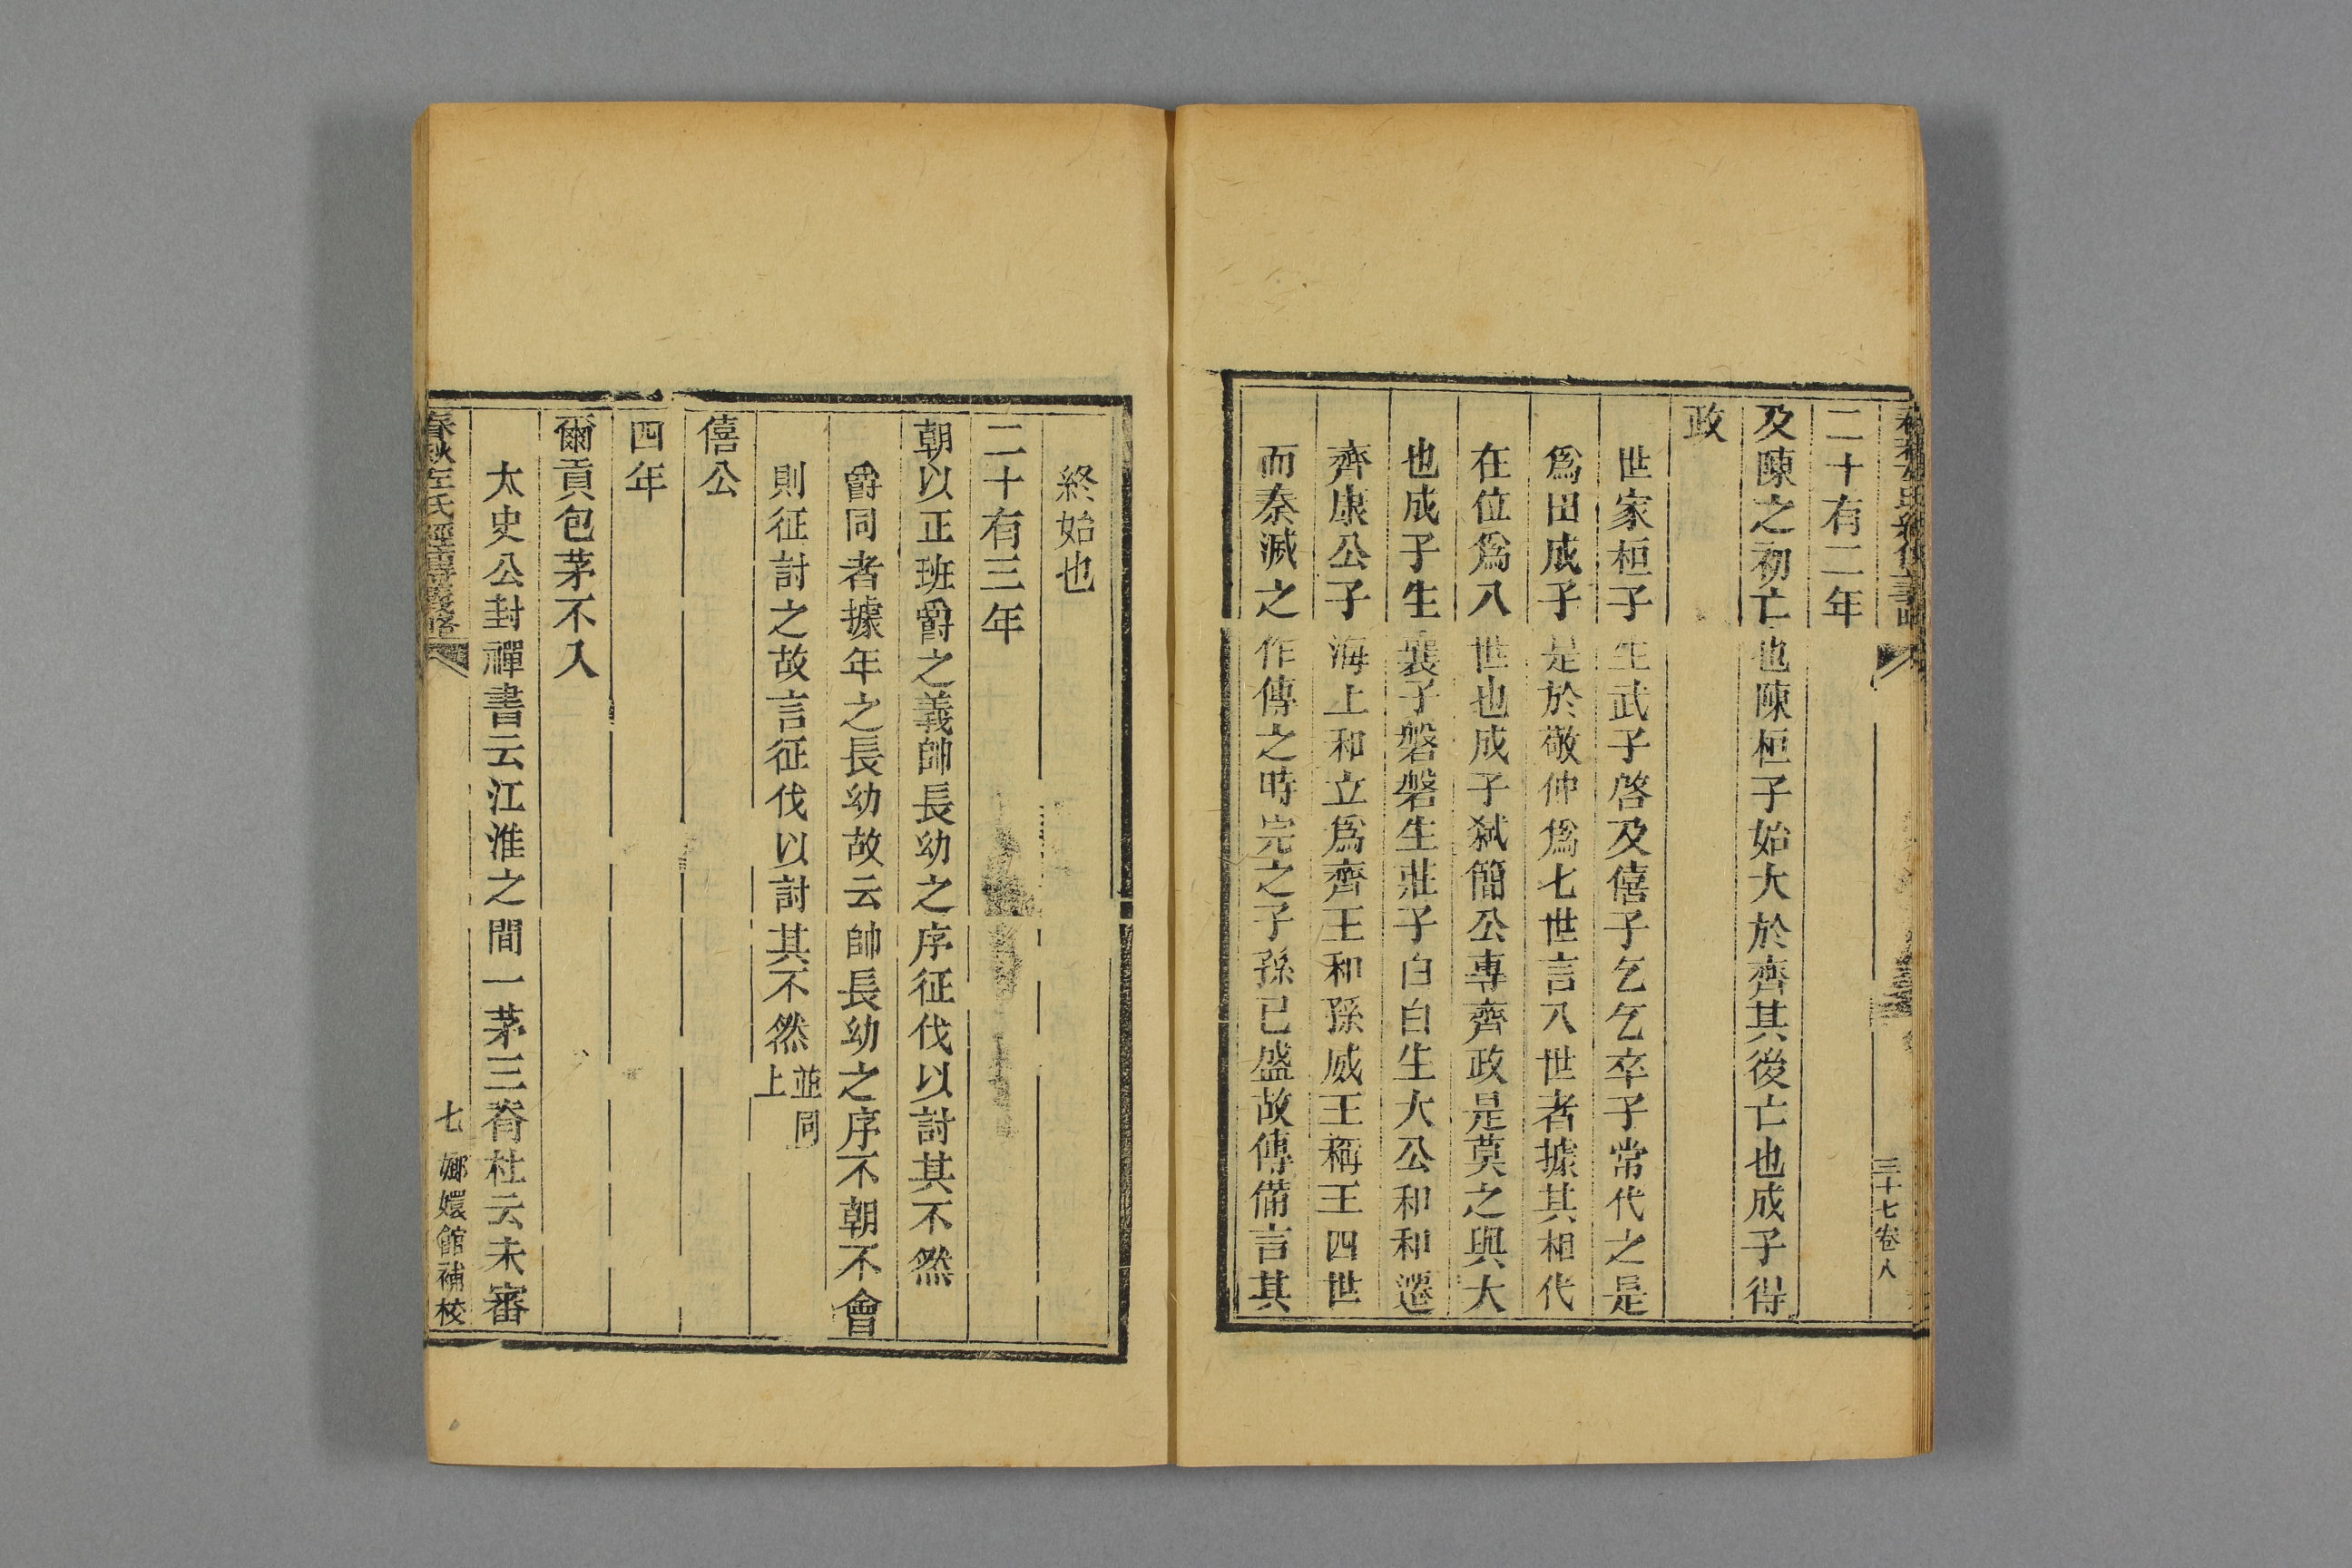 二十有二年
及陳之初亡也陳桓子始大於齊其後亡也成子得
政
世家桓子生武子啓及僖子乞乞卒子常代之是
爲田成子是於敬仲爲七世言八世者據其相代
在位爲八世也成子弒簡公專齊政是莫之與大
也成子生襄子磐磐生莊子白白生大公和和遷
齊康公子海上和立爲齊王和孫威王稱王四世
而秦滅之作傳之時完之子孫已盛故傳備言其
三十七卷八
終始也
二十有三年
朝以正班爵之義帥長幼之序征伐以討其不然
爵同者據年之長幼故云帥長幼之序不朝不會
則征討之故言征伐以討其不然並同上
僖公
四年
爾貢包茅不入
太史公封禪書云江淮之間一茅三脊杜云未審
春秋左氏經傳義略
七
嫏嬛館補校